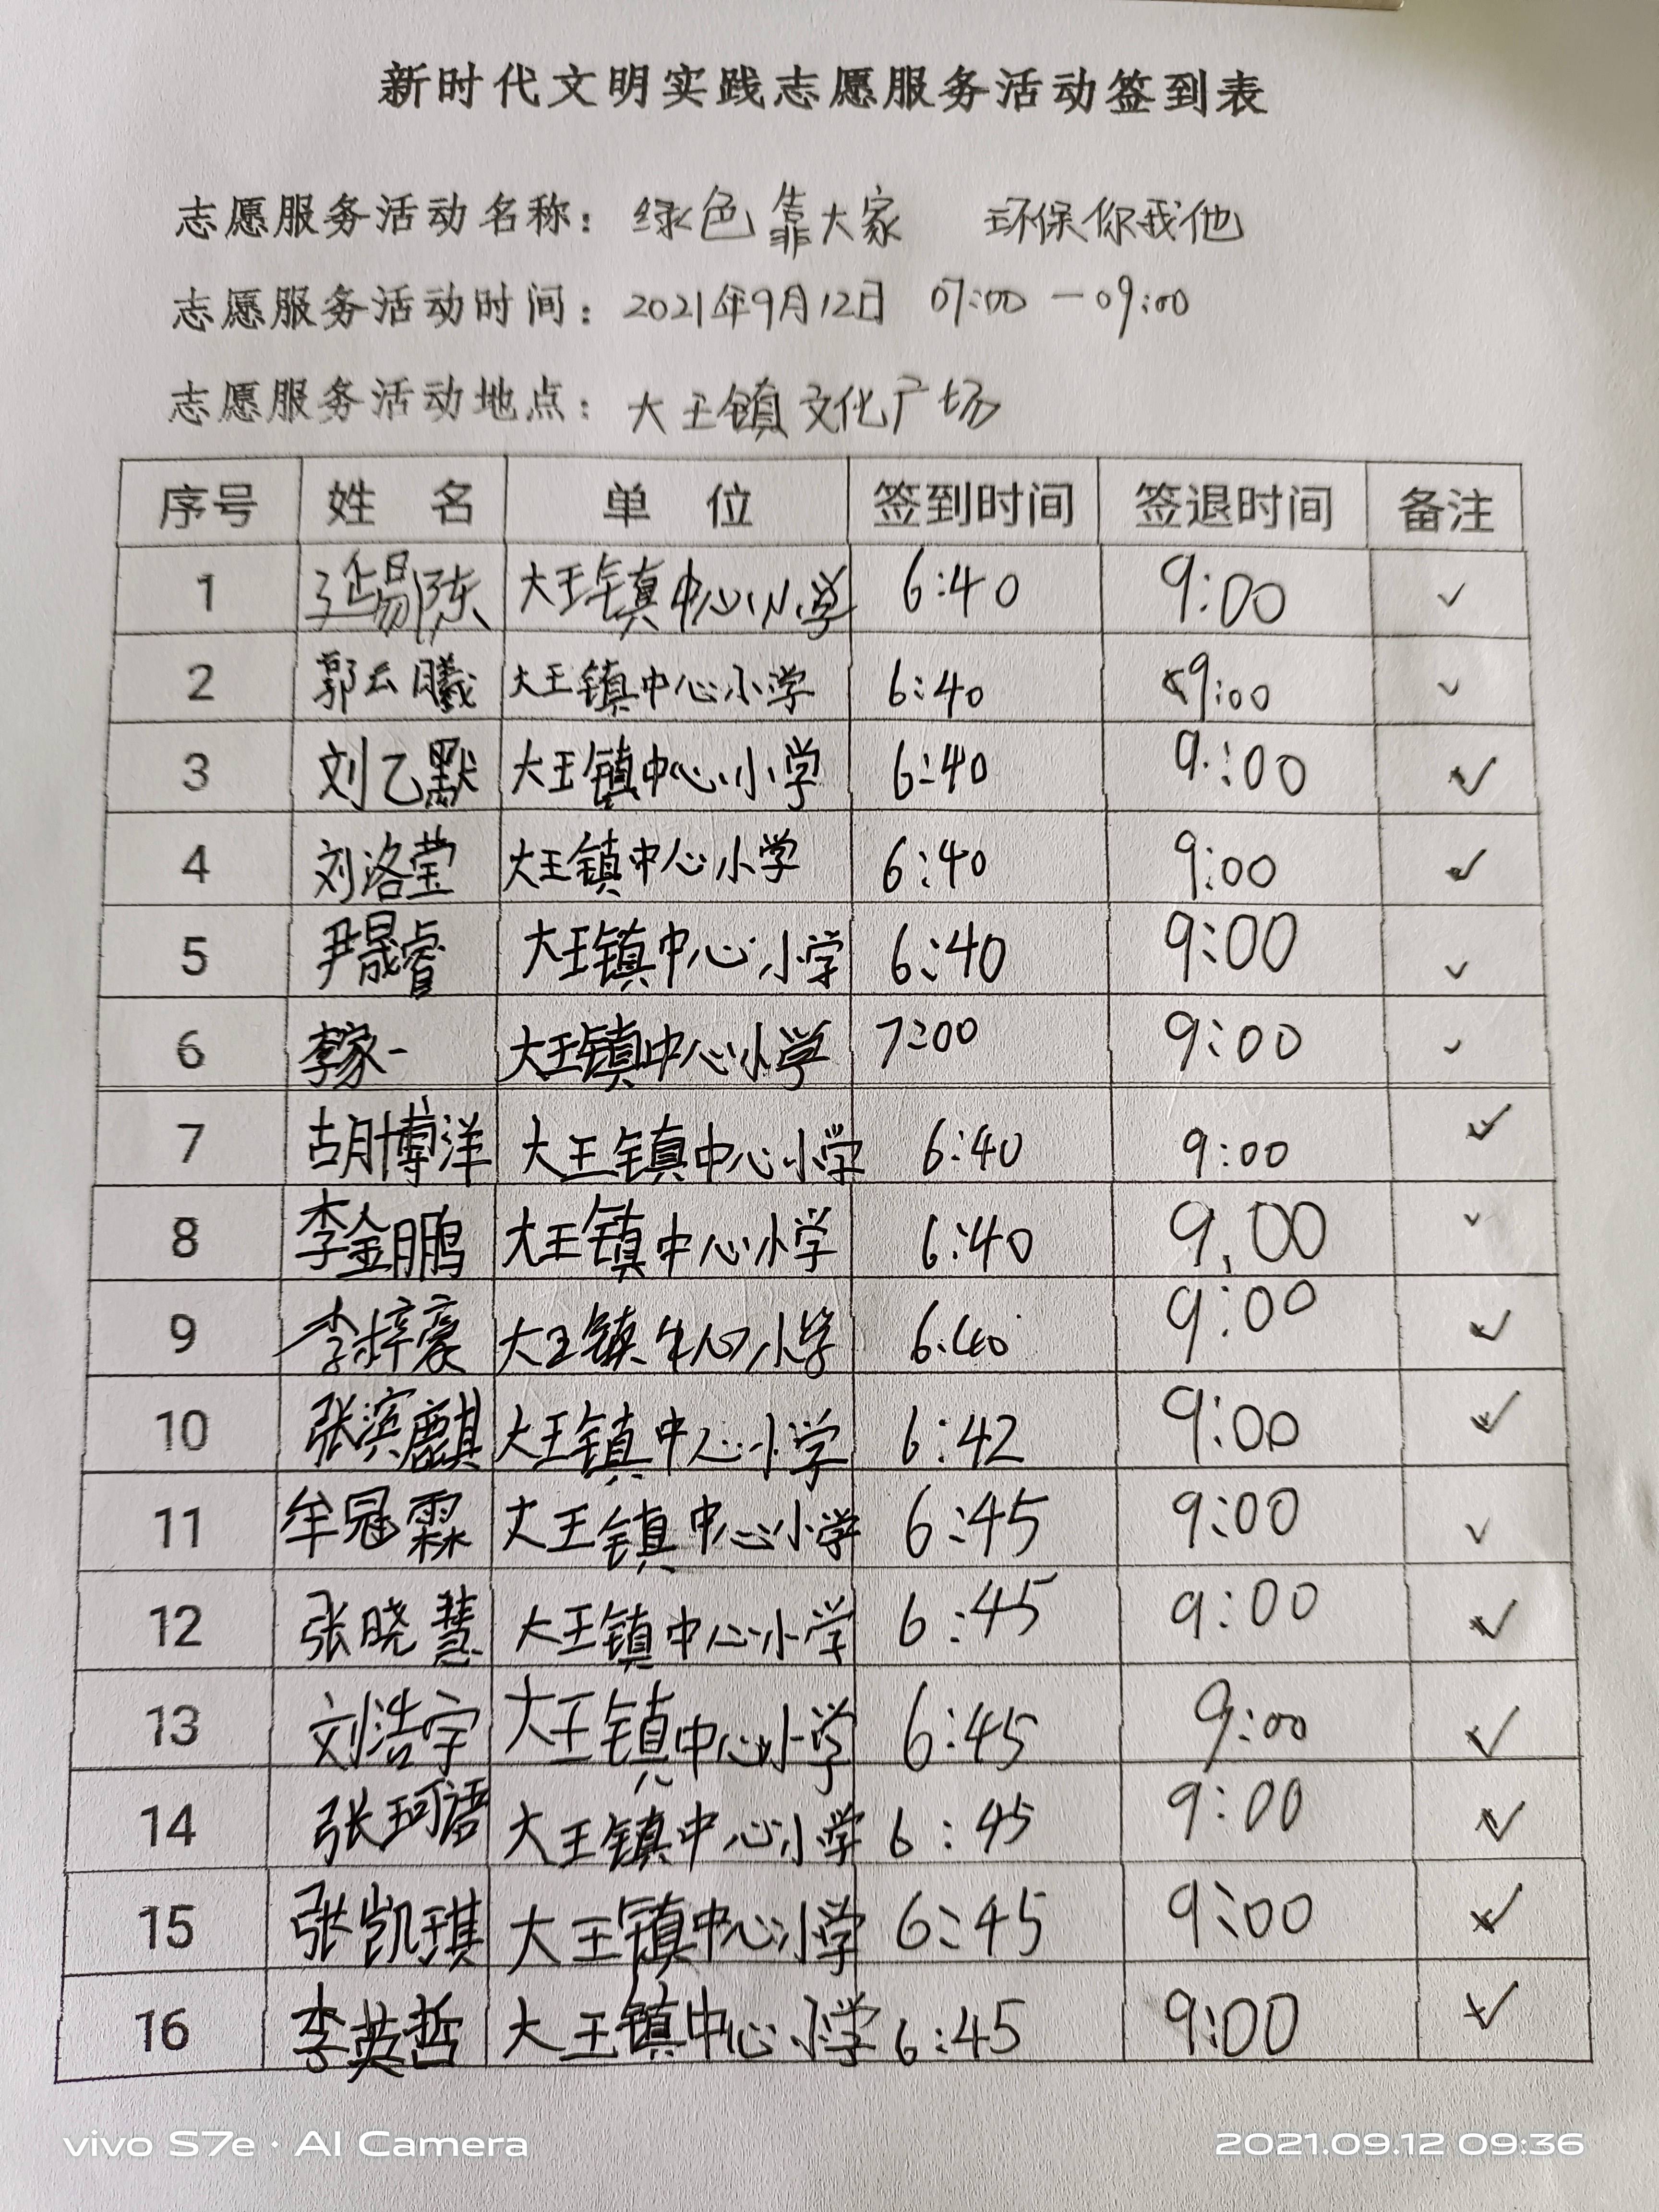 新时代文明实践志愿服务活动签到表
志愿服务活动名称：绿色靠大家 环保你我他
志愿服务活动时间：2021年9月12日 07:00一09:00
志愿服务活动地点：大王镇文化广场
序号 姓名 单位 签到时间 签退时间 备注
1 延易陈 大王镇中心小学 6:40 9:00 ✓
2 郭云曦 大王镇中心小学 6:40 9:00 ✓
3 刘乙默 大王镇中心小学 6:40 9:00 ✓
4 刘洛莹 大王镇中心小学 6:40 9:00 ✓
5 尹晟睿 大王镇中心小学 6:40 9:00 ✓
6 李家一 大王镇中心小学 7:00 9:00 ✓
7 胡博洋 大王镇中心小学 6:40 9:00 ✓
8 李金鹏 大王镇中心小学 6:40 9.00 ✓
9 李梓豪 大王镇中心小学 6:40 9:00 ✓
10 张滨麒 大王镇中心小学 6:42 9:00 ✓
11 牟冠霖 大王镇中心小学 6:45 9:00 ✓
12 张晓慧 大王镇中心小学 6:45 9:00 ✓
13 刘浩宇 大王镇中心小学 6:45 9:00 ✓
14 张珂语 大王镇中心小学 6:45 9:00 ✓
15 张凯琪 大王镇中心小学 6:45 9:00 ✓
16 李英哲 大王镇中心小学 6:45 9:00 ✓
vivo S7e · AI Camera 2021.09.12 09:36